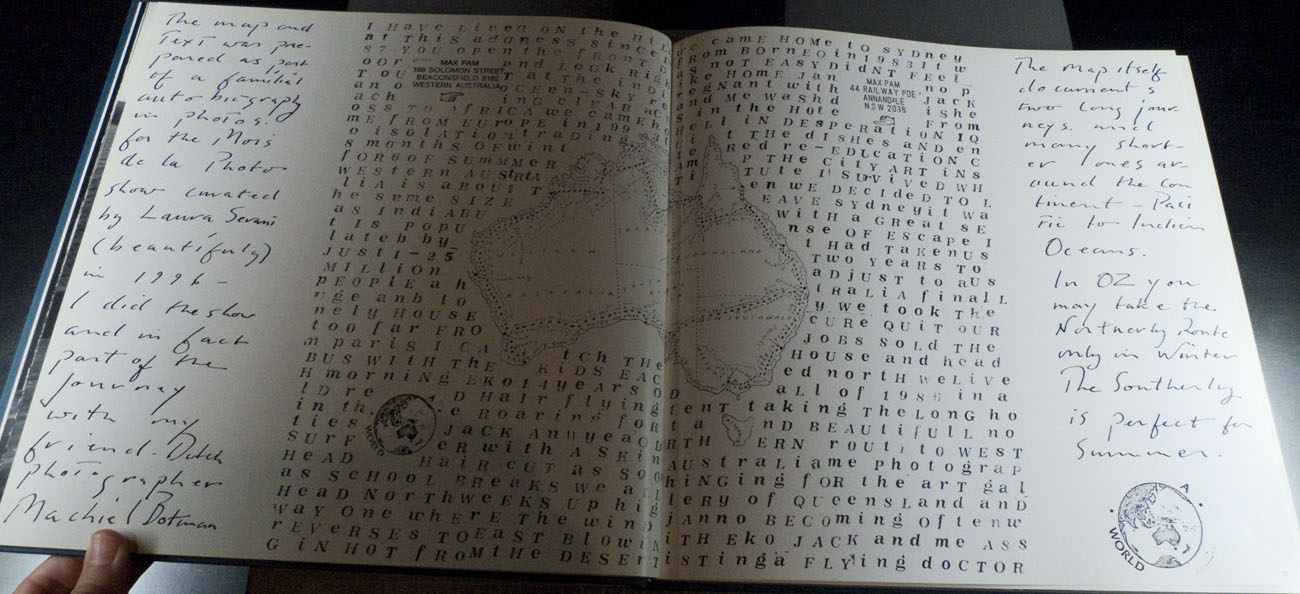 The map and
Text was pre-
pared as part
of a familial
autobiography
in photos.
for the Mois
de la Photo
show curated
by Laura Serani
(beautifuly)
in 1996 -
I did the show
and in fact
part of the
Journay
with my
friend. Dutch
photographer
Machiel Botman
I HAVE LIVED ON THE HIL
at THIS address since
87 YOU open the front D
OOr and Look Rig
MAX PAM
188 SOLOMON STREET,
BEACONSFIELD 6162
WESTERN AUSTRALIA
T at The indi
an o OCERN-SKY re
ach ing CLEAR acr
OSS TO AFRICA we came ho
ME FROM EUROPE in 199
O isolation trading
8 months OF wint
FOR 6 OF SUMMER
WESTERN AUSTRA
LIA IS ABOUT T
he same SIZE
as IndiABU
t IS POPU
lated by
JUST 1-25
MILLION
PEOPLE a h
uge and lo
nely HOUSE
too far FRO
m paris I CA
tch THE
BUS WITH THE KIDS EAC
H morning EKO 14 years O
LD re D HAir flying
in th e Roaring for
ties JACK Annyeao
SURF ER with A SKin
HEAD HAir CUT as So
as SCHOOL BREAKS we a
HEAD NORTH WEEKS UP hig
WAY One where The wind
rEVERSES TO EAST Blowi
G iN HOT fROM the DESER
WORLD
we came HOME to SYDNEY
FROM BORNEO in 1983 I w
as nOT EASY DidNT FEEL
ike HOME Jan no p
regnant with Jack
and me Washd ishe
s in the Hote From
MAX PAM
44 RAILWAY PDE
ANNANDALE
NSW 2038
HELL iN DESPERATiON IQ
uit THE diSHES aND en
tered re-EDUCATION C
P THE CiTY ART iNS
TUTE I SURVIVED WH
en WE DECIDED TO L
EAVE SYDNEY it wa
S WITH a GREAT SE
nse OF Escape I
t HAD TAKEN US
TWO YEARS TO
ADJUST to aUS
TRALIA finaLL
y we took THE
CURE QUIT OUR
JOBS SOLD THE
HOUSE and head
ed north WE LIVE
D all of 1986 in a
tent taking THE LONG ho
t a ND BEAUTIFULL no
RTH ERN rOUTE TO WEST
AUSTRALIA me photograp
hiNGING FOR the art gal
lery of QUEENSLAND anD
JANNO BECOMING OFten w
iTH EKO JACK and me ASS
ISTing a FLYing doCTOR
The map itself
documents
two long jour
neys. and
many short-
er ones ar-
ound the Con
tinent - Paci
fic to Indian
Oceans.
In OZ you
may take the
Northerly Route
only in Winter
The Southerly
is perfect for
Summer.
WORLD